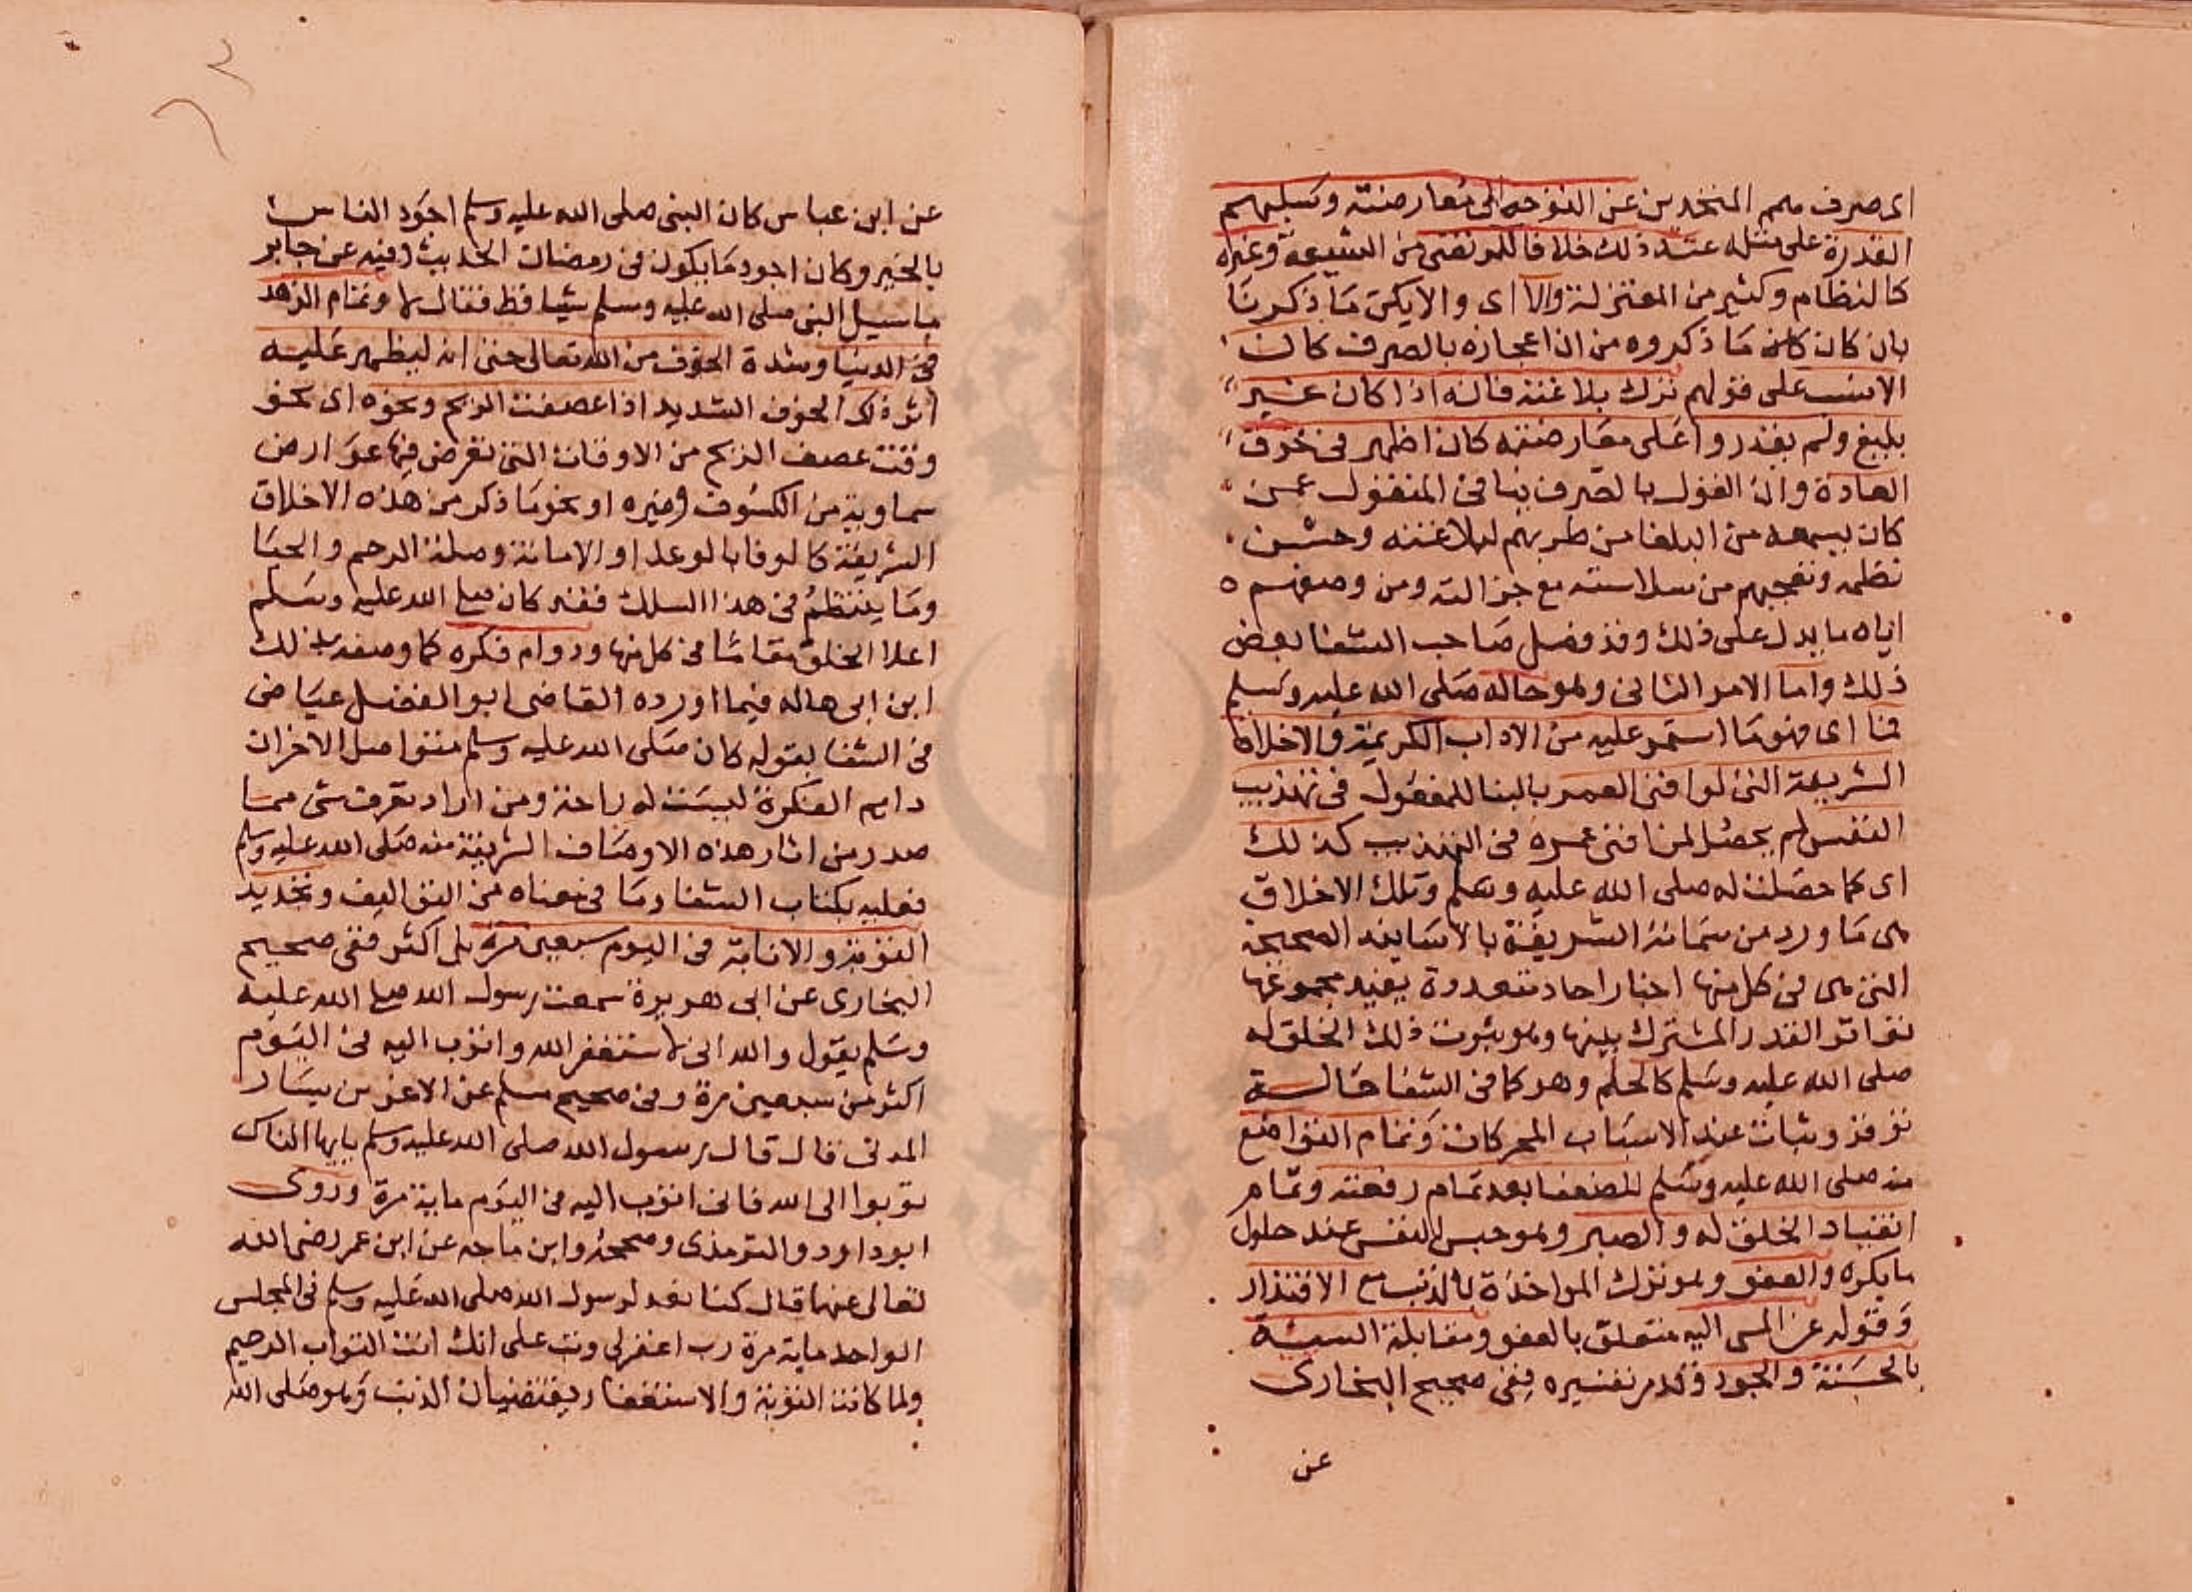 اى صرف همم المتحدين عن التوجه الى معارضته وسلبهم
القدرة على مثله عند ذلك خلافا للمرتضى من الشيعة وغيره
كالنظام وكثير من المعتزلة والا اى والا يكن ما ذكرنا
بان كان كان ما ذكروه من ان اعجازه بالصرف كان
الانسب على قولهم ترك بلاغته فانه اذا كان غير
بليغ ولم يقدروا على معارضته كان اظهر فى خرق
العادة وان القول بالصرف ينافى المنقول عمن
كان يسمعه من البلغا من طربهم لبلاغته وحسن
نظمه وتعجبهم من سلاسته مع جزالته ومن وصفهم
اياه ما يدل على ذلك وقد فصل صاحب الشفا بعض
ذلك واما الامر الثانى وهو حاله صلى الله عليه وسلم
فما اى فهو ما استمر عليه من الاداب الكريمة والاخلاق
الشريفة التى لو افنى العمر بالبنا للمفعول فى تهذيب
النفس لم يحصل لمن افنى عمره فى التهذيب كذلك
اى كما حصلت له صلى الله عليه وسلم وتلك الاخلاق
هى ما ورد من شمائله الشريفة بالاسانيد الصحيحة
التى هى فى كل منها اخبار احاد متعددة يفيد مجموعها
تواتر القدر المشترك بينها وهو ثبوت ذلك الخلق له
صلى الله عليه وسلم كالحلم وهو كما فى الشفا حالة
توقر وثبات عند الاسباب المحركات وتمام التواضع
منه صلى الله عليه وسلم للضعفا بعد تمام رفعته وتمام
انقياد الخلق له والصبر وهو حبس النفس عند حلول
ما يكره والعفو وهو ترك المواخذة بالذنب مع الاقتدار
وقوله عن المسى اليه متعلق بالعفو ومقابلة السيئة
بالحسنة والجود وقد مر تفسيره ففى صحيح البخارى
عن
عن ابن عباس كان النبى صلى الله عليه وسلم اجود الناس
بالخير وكان اجود ما يكون فى رمضان الحديث وفيه عن جابر
ما سيل النبى صلى الله عليه وسلم شيا قط فقال لا وتمام الزهد
فى الدنيا وشدة الخوف من الله تعالى حتى انه ليظهر عليه
اثر ذلك الخوف الشديد اذا عصفت الريح ونحوه اى نحو
وقت عصف الريح من الاوقات التى تعرض فيها عوارض
سماوية من الكسوف وغيره او نحو ما ذكر من هذه الاخلاق
الشريفة كالوفا بالوعد او الامانة وصلة الرحم والحيا
وما ينتظم فى هذا السلك فقد كان صلى الله عليه وسلم
اعلا الخلق مقاما فى كل منها ودوام فكره كما وصفه بذلك
ابن ابى هاله فيما اورده القاضى ابو الفضل عياض
فى الشفا بقوله كان صلى الله عليه وسلم متواصل الاحزان
دايم الفكرة ليست له راحة ومن اراد تعرف شى مما
صدر من اثار هذه الاوصاف الشريفة منه صلى الله عليه وسلم
فعليه بكتاب الشفا وما فى معناه من التواليف وتجديد
التوبة والانابة فى اليوم سبعين مرة بل اكثر ففى صحيح
البخارى عن ابى هريرة سمعت رسول الله صلى الله عليه
وسلم يقول والله انى لاستغفر الله واتوب اليه فى اليوم
اكثر من سبعين مرة وفى صحيح مسلم عن الاغر بن يسار
المدنى قال قال رسول الله صلى الله عليه وسلم يايها الناس
توبوا الى الله فانى اتوب اليه فى اليوم ماية مرة وروى
ابو داود والترمذى وصححه وابن ماجه عن ابن عمر رضى الله
تعالى عنها قال كنا نعد لرسول الله صلى الله عليه وسلم فى المجلس
الواحد ماية مرة رب اغفر لى وتب على انك انت التواب الرحيم
ولما كانت التوبة والاستغفار يقتضيان الذنب وهو صلى الله